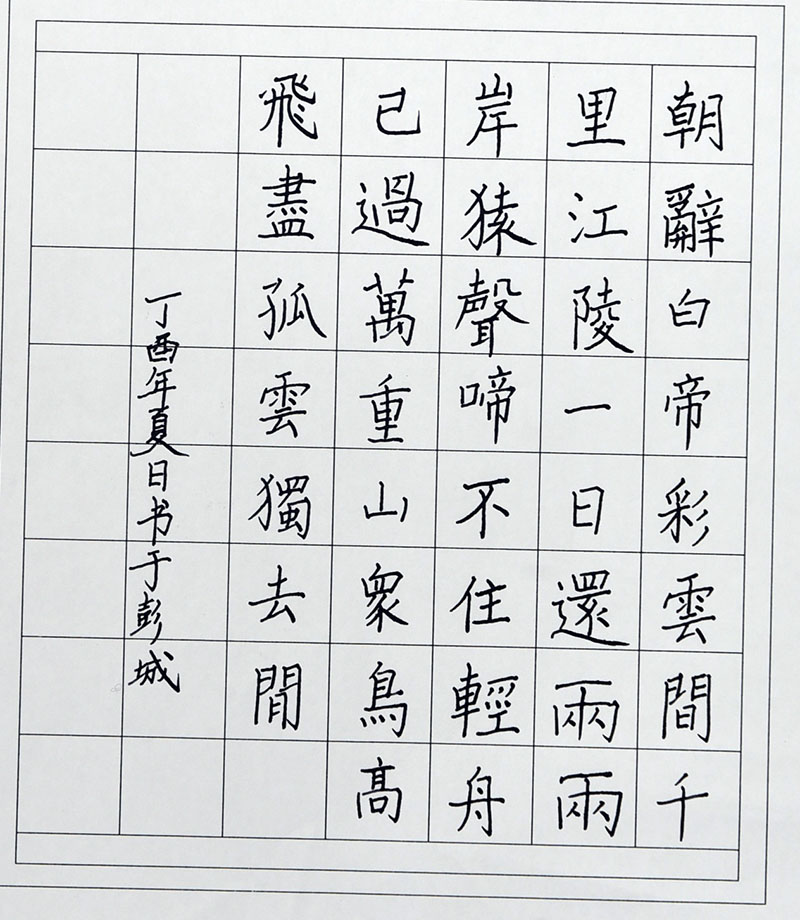 朝辭白帝彩雲間千
里江陵一日還兩兩
岸猿聲啼不住輕舟
已過萬重山眾鳥髙
飛盡孤雲獨去閒
丁酉年夏日书于彭城